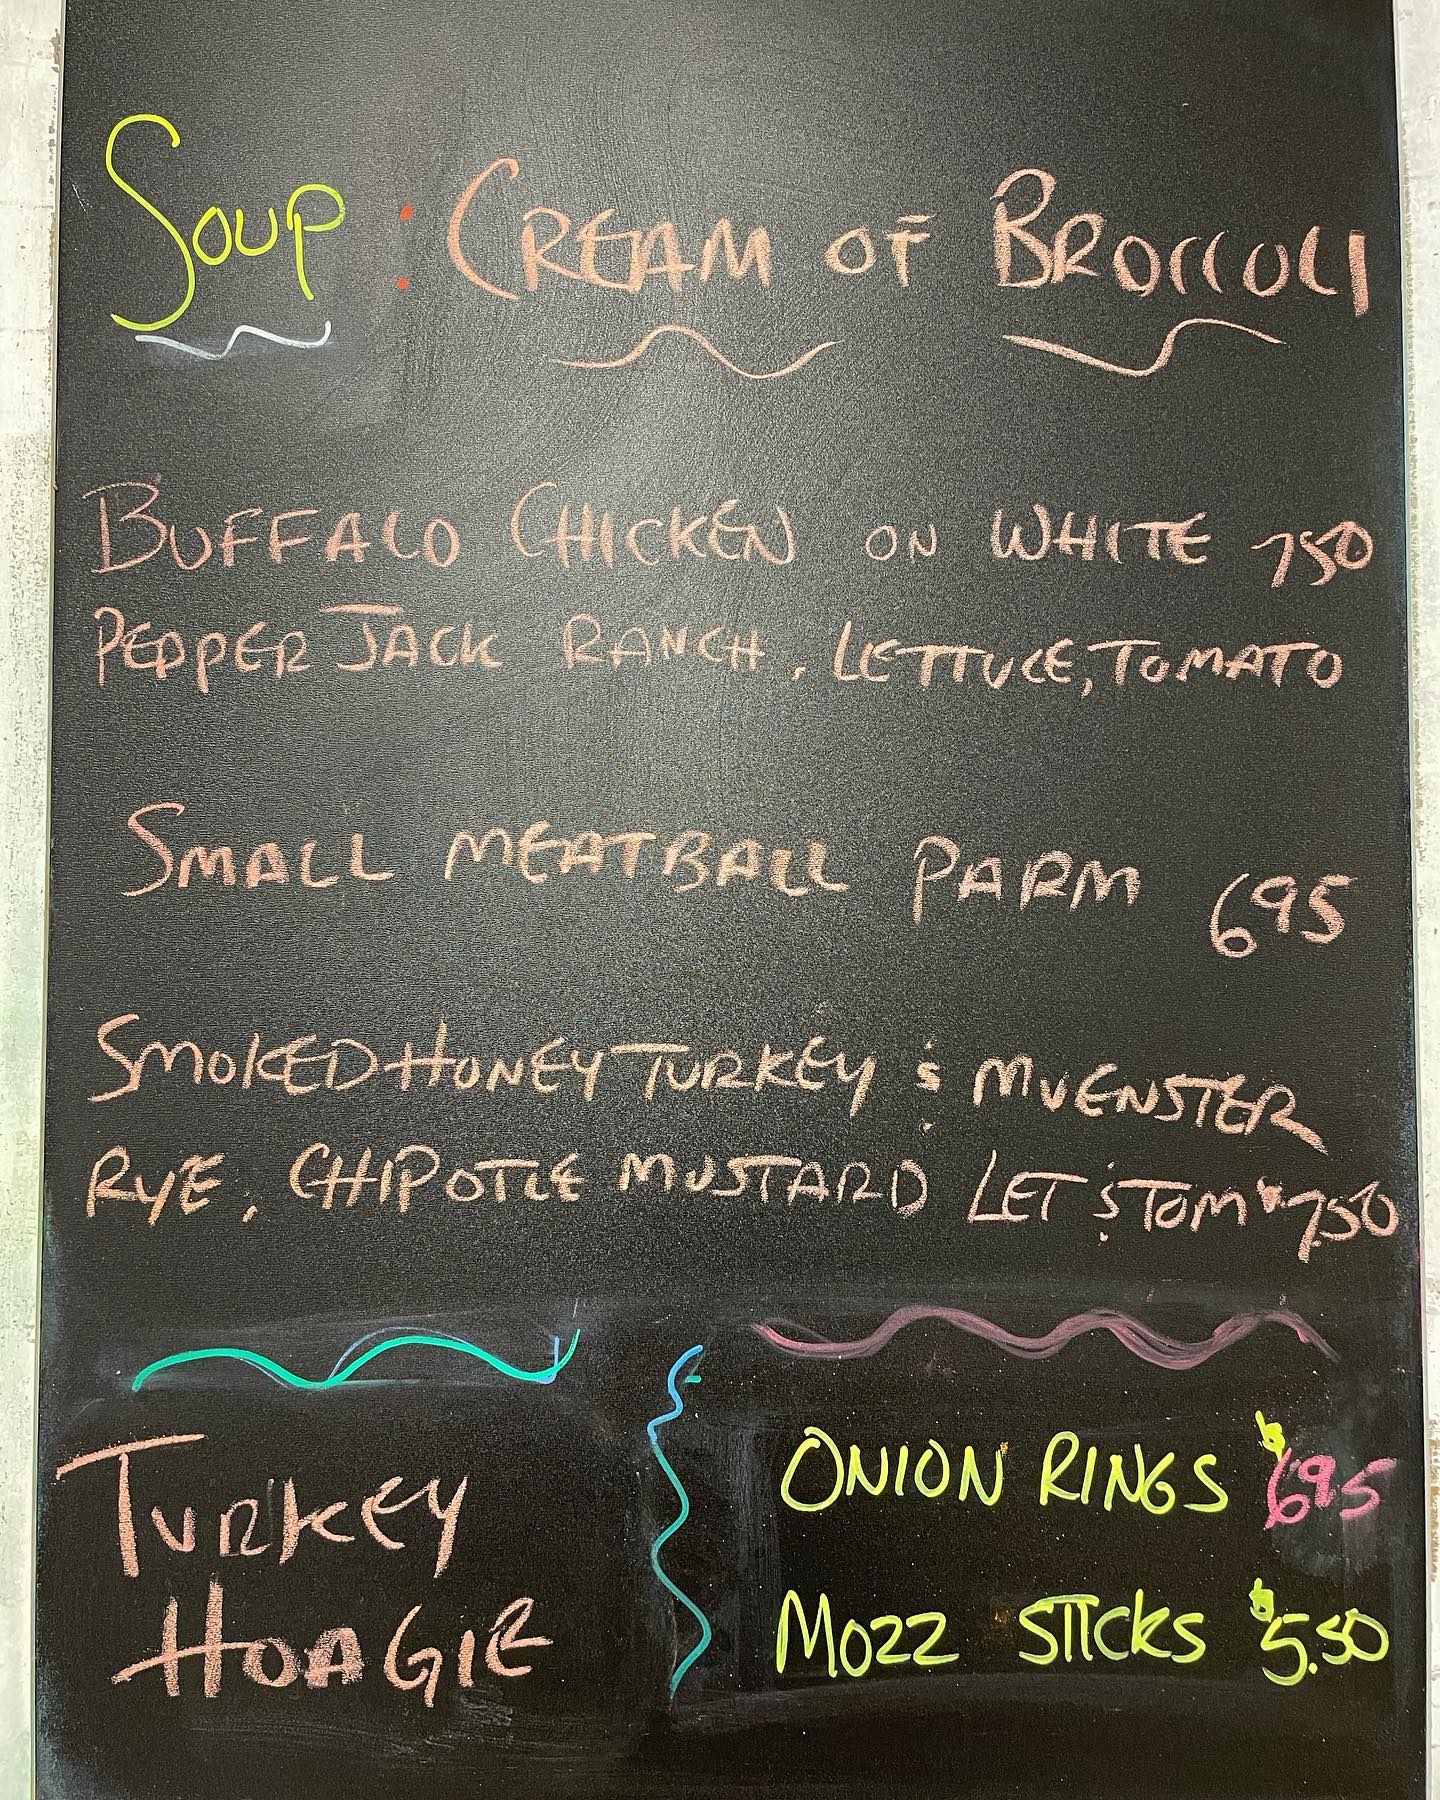 SOUP : CREAM OF BROCCOLI
BUFFALO CHICKEN ON WHITE 750
PEPPER JACK RANCH, LETTUCE, TOMATO
SMALL MEATBALL PARM 695
SMOKED HONEY TURKEY & MUENSTER
RYE, CHIPOTLE MUSTARD LET & TOM $7.50
TURKEY
HOAGIE
ONION RINGS $695
MOZZ STICKS $5.50